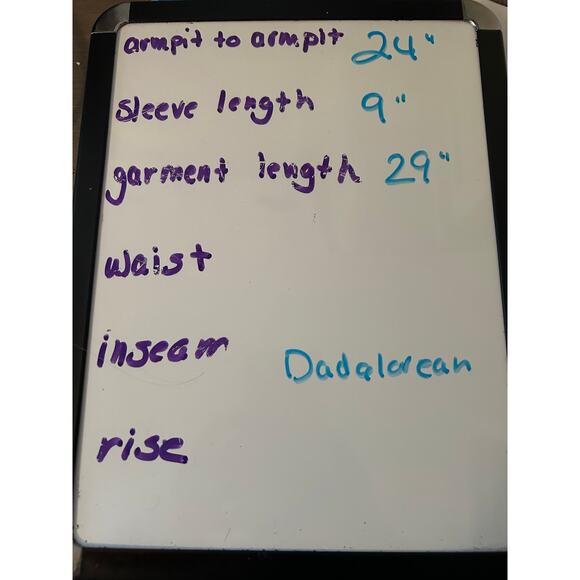 armpit to armpit 24"
sleeve length 9"
garment length 29"
waist
inseam
Dadalorean
rise